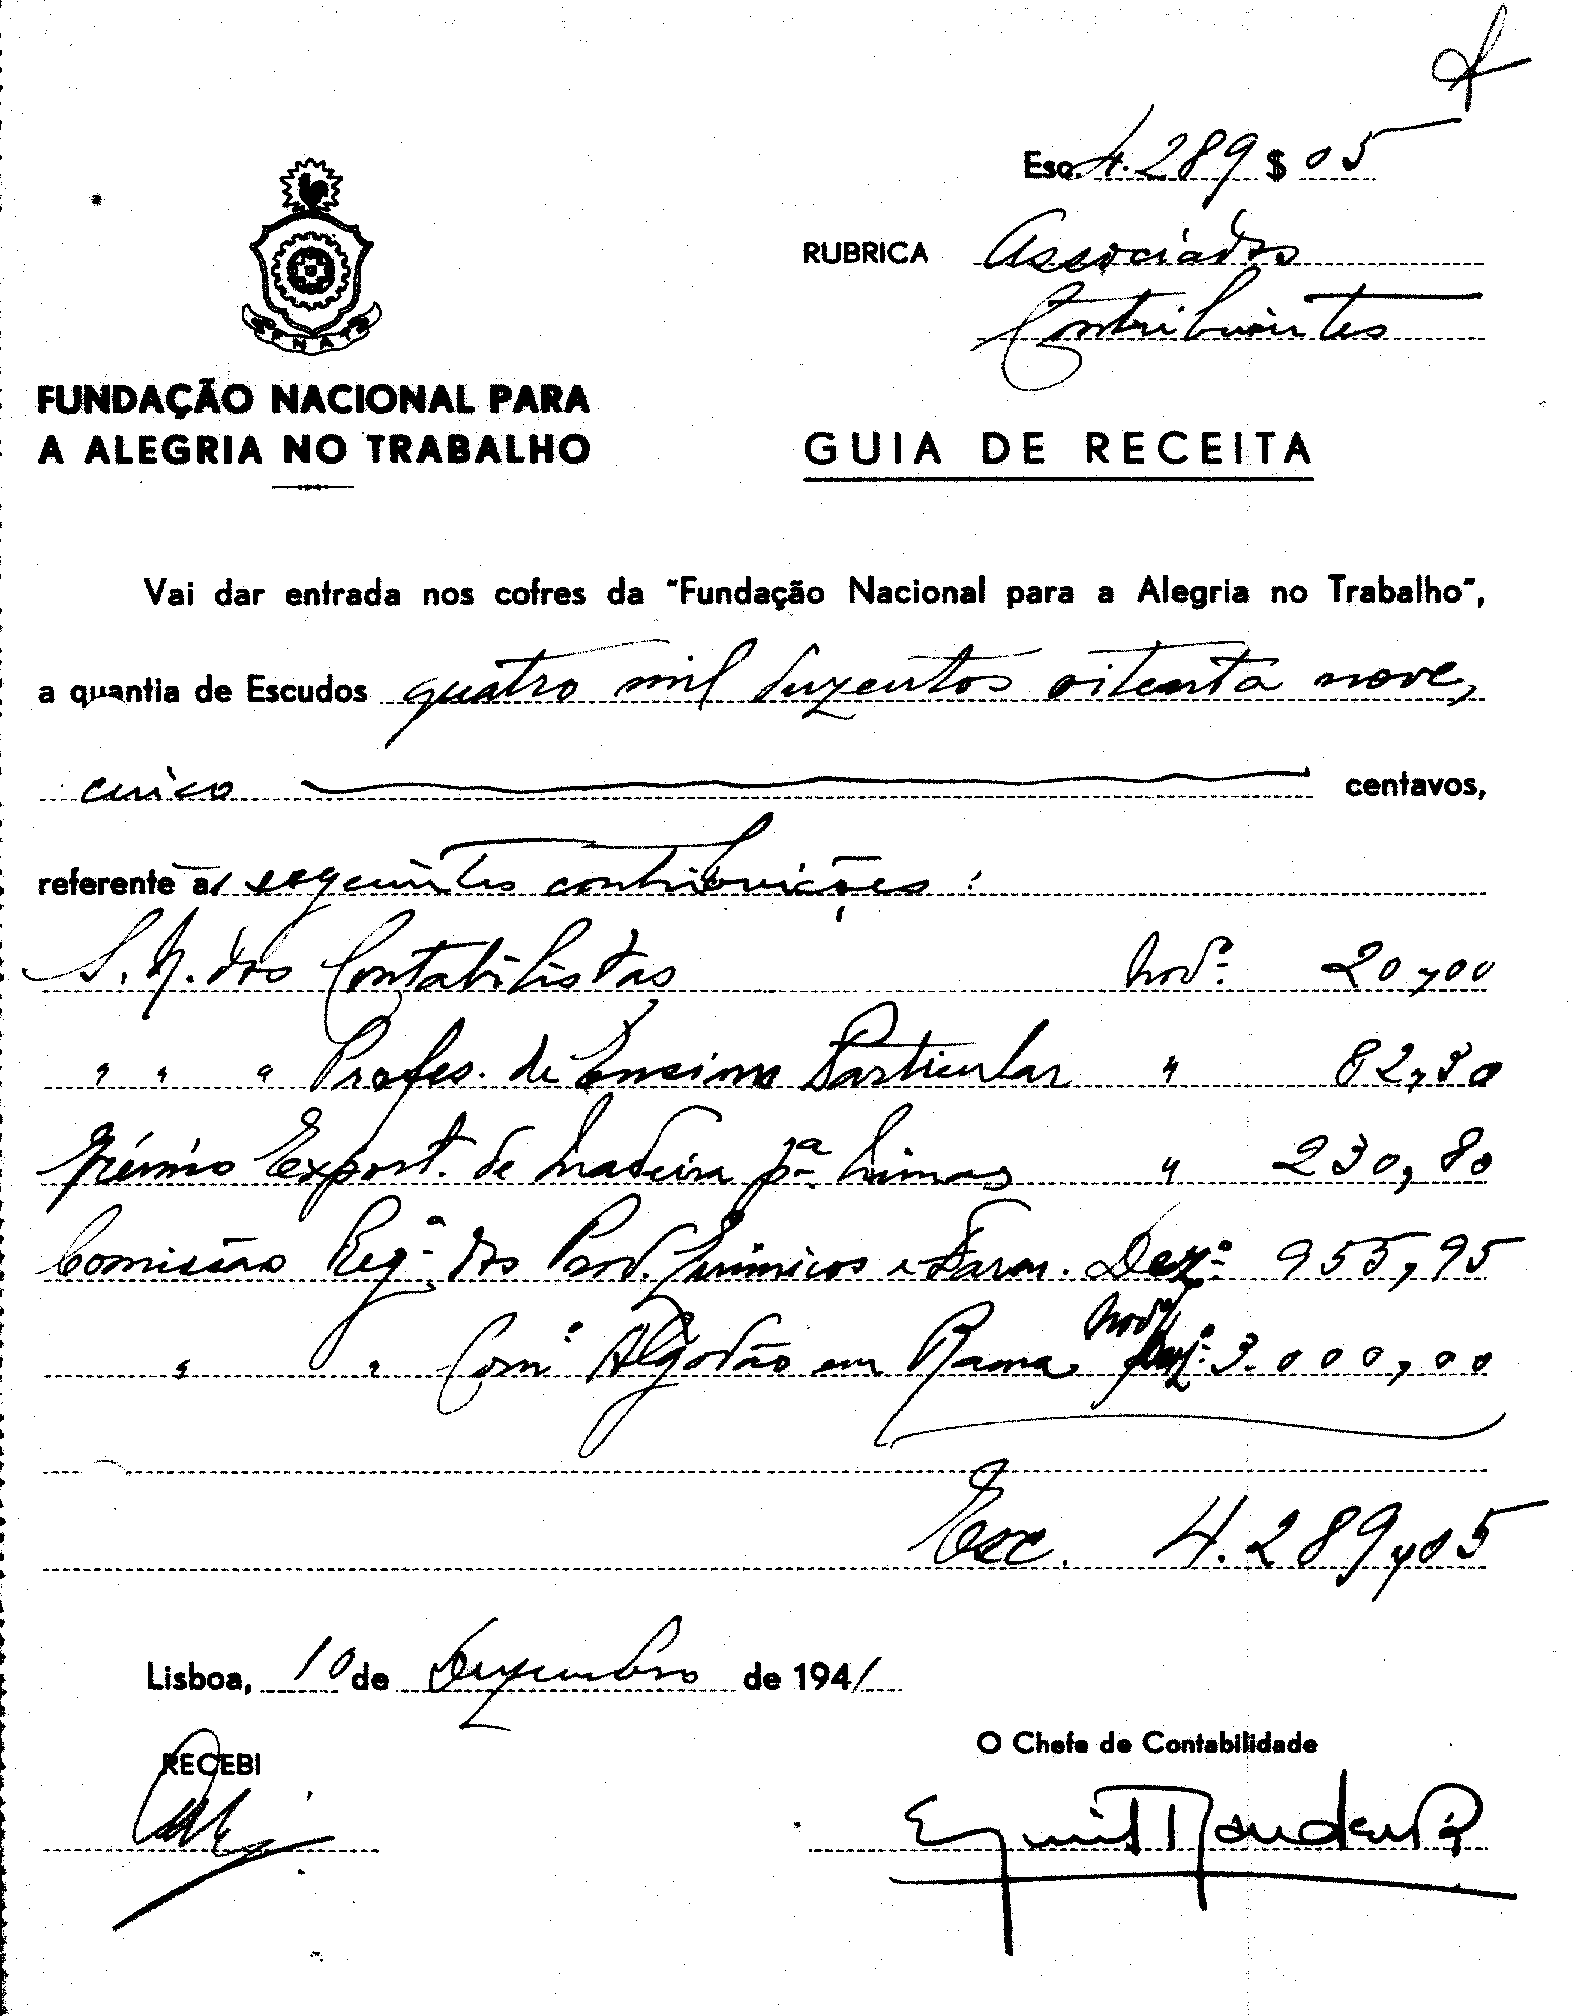 Esc. 4.289 $ 05
RUBRICA Associados
Contribuintes
FNAT
FUNDAÇÃO NACIONAL PARA
A ALEGRIA NO TRABALHO
GUIA DE RECEITA
Vai dar entrada nos cofres da "Fundação Nacional para a Alegria no Trabalho",
a quantia de Escudos quatro mil duzentos oitenta nove,
cinco centavos,
referente às seguintes contribuições:
S. N. dos Contabilistas Novº. 20,00
" " " Profes. de Ensino Particular " 82,30
Grémio Export. de Madeira pª. " 230,80
Comissão Regª. dos Prod. Químicos e Farm. Dezº. 955,95
" " Comº Algodão em Rama Novº 3.000,00
Esc. 4.289,05
Lisboa, 10 de Dezembro de 1941
RECEBI
O Chefe de Contabilidade